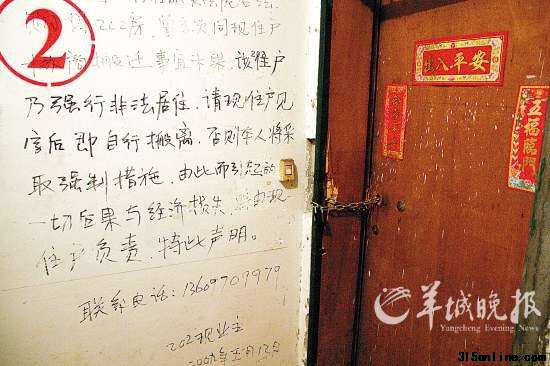 2
202房
搬迁事宜未果,该住户
乃强行非法居住,请现住户见
言后即自行搬离,否则本人将采
取强制措施,由此而引起的
一切后果与经济损失,
住户负责,特此声明。
联系电话:13609707979
202现业主
出入平安
五福臨門
羊城晚报
Yangcheng Evening News
315online.com